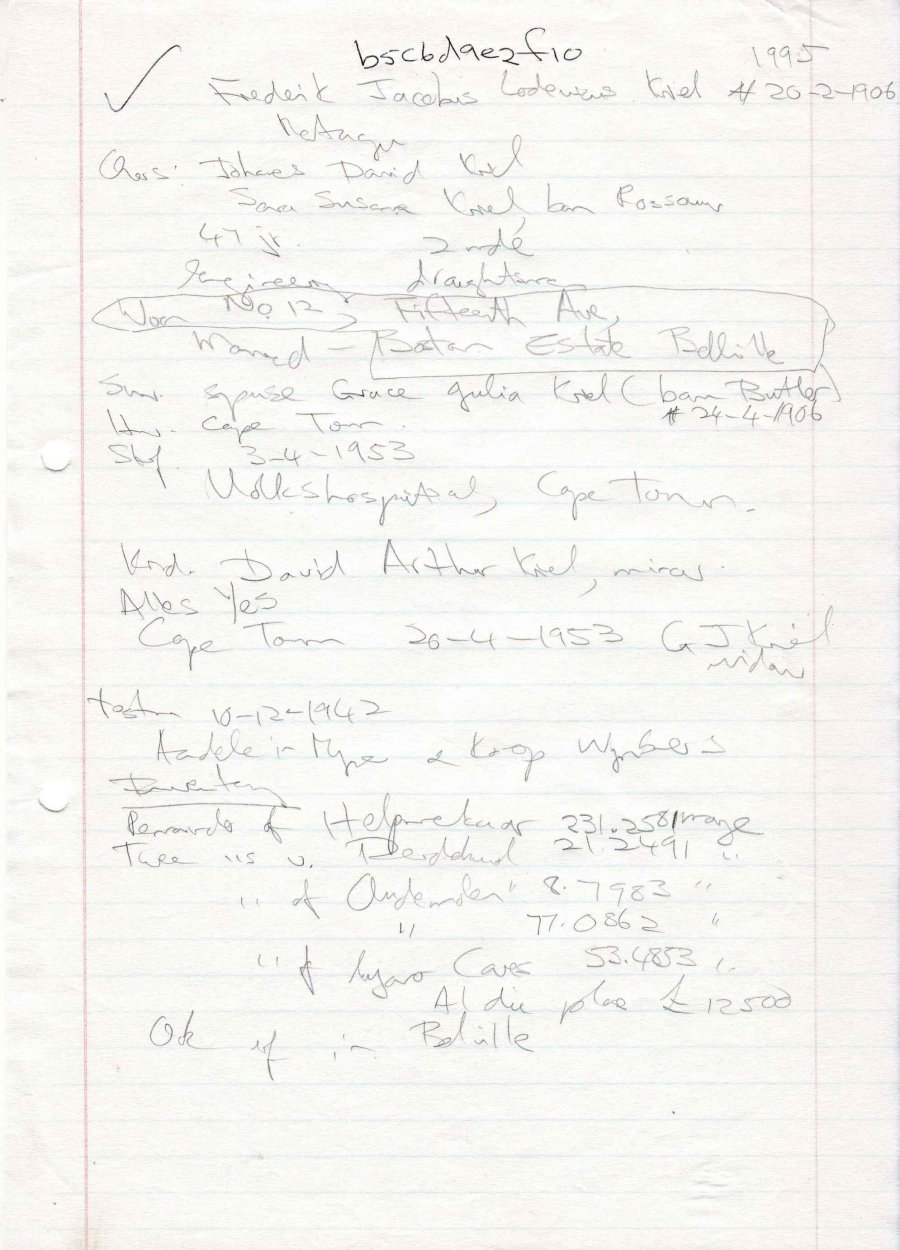 b5c6d9e2f10 1995
Frederik Jacobus Lodewus Kriel # 20-2-1906
Montagu
Ouers: Johanes David Kriel
Sara Susana Kriel, ban Rossouw
47 jr. 2ndé
Engineering draughtsman
Woon No 12, Fifteenth Ave,
Married - Boston Estate Bellville
Surv. spouse Grace Julia Kriel (ban Butler)
# 24-4-1906
Huw. Cape Town.
Sterf. 3-4-1953
Volkshospitaal, Cape Town.
Knd. David Arthur Kriel, minor.
Alles Yes
Cape Town 20-4-1953 G J Kriel
widow
Testm 10-12-1942
Aandele in & Koop
Inventory
Remainder of Helpmekaar 231.2581 morge
Twee "s v. 21.2491 "
" of " 8.7983 "
" 77.0862 "
" of Caves 53.4853 "
Al die plase £12500
Ook erf in Belville